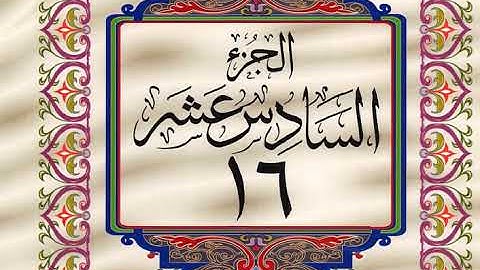 الجزء
السادس عشر
١٦